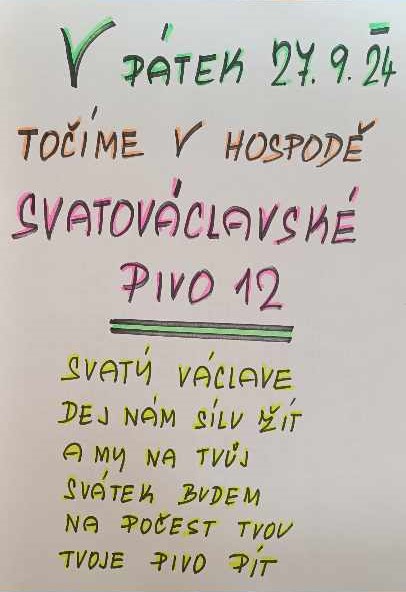 V PÁTEK 27. 9. 24
TOČÍME V HOSPODĚ
SVATOVÁCLAVSKÉ
PIVO 12
SVATÝ VÁCLAVE
DEJ NÁM SÍLU ŽÍT
A MY NA TVŮJ
SVÁTEK BUDEM
NA POČEST TVOU
TVOJE PIVO PÍT